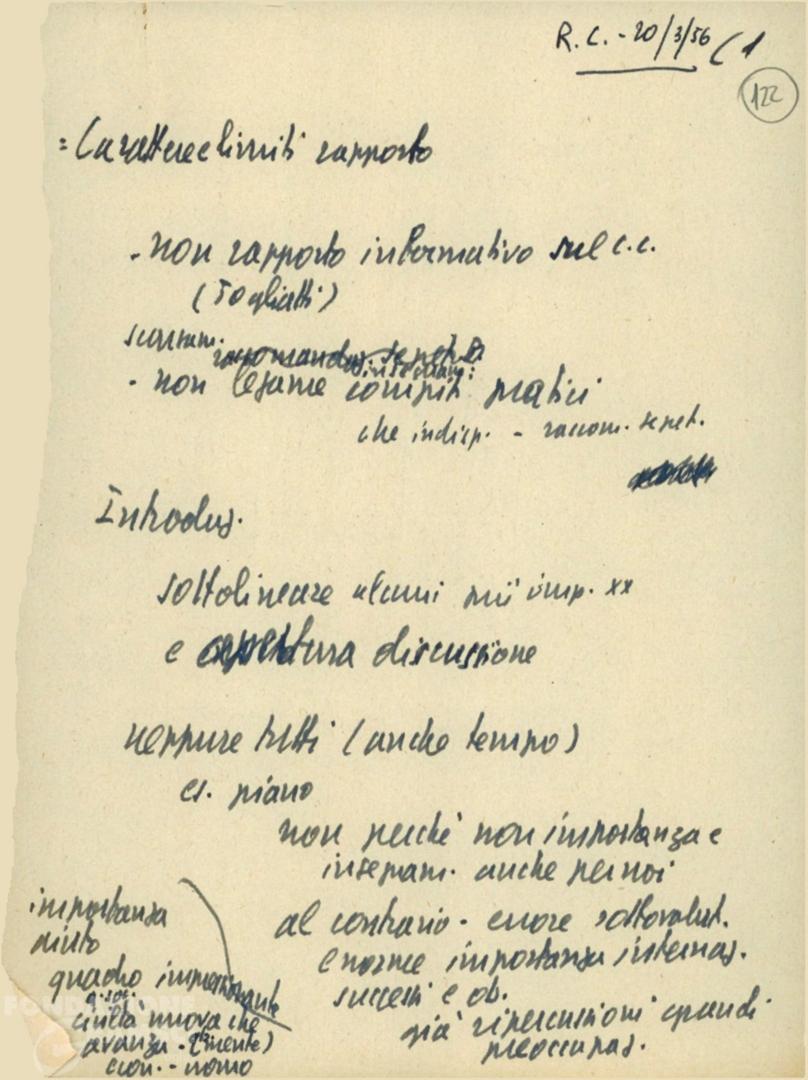 R.C. - 20/3/56 (1
122
= Carattere e limiti rapporto
- non rapporto informativo sul c.c.
(Togliatti)
- non esame compiti pratici
che indisp. - raccom. segret.
Introduz.
sottolineare alcuni più imp. xx
e apertura discussione
neppure tutti (anche tempo)
es. piano
non perché non importanza e
insegnam. anche per noi
al contrario - errore sottovalut.
enorme importanza internaz.
successi e ob.
già ripercussioni grandi
preoccupaz.
importanza
quadro impressionante
civiltà nuova che
avanza
uomo